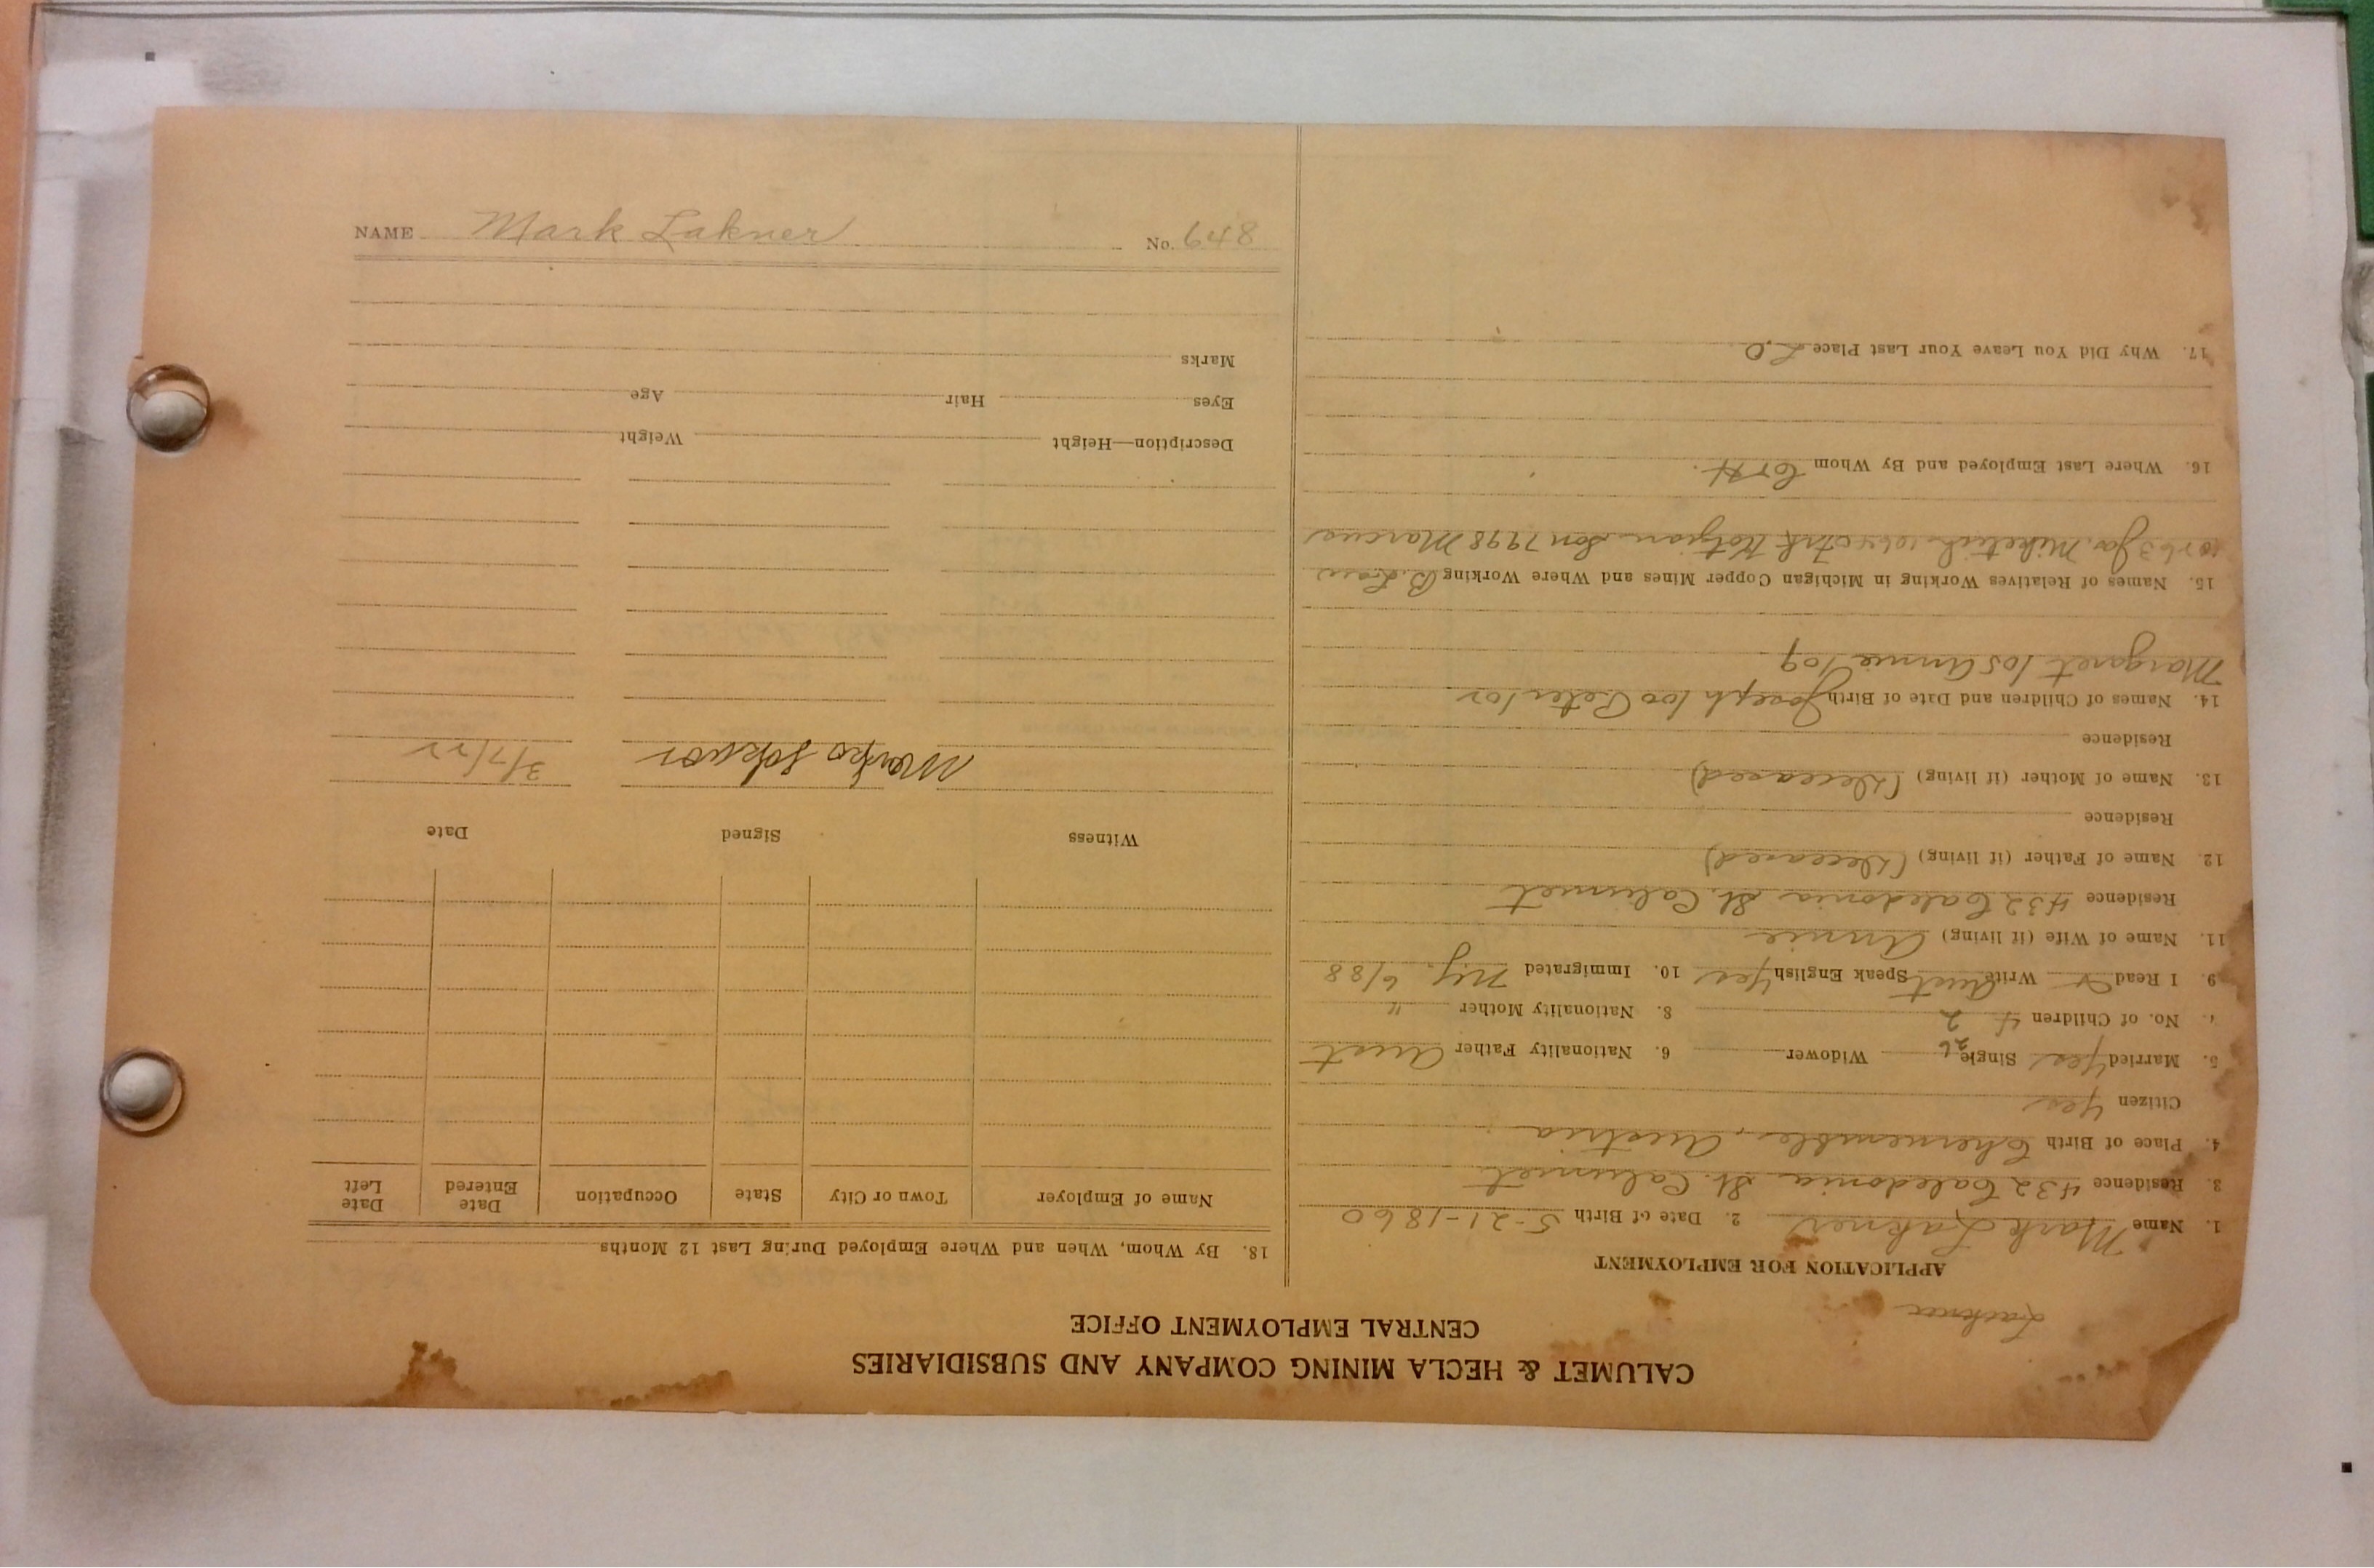 NAME Mark Lakner No. 648
CALUMET & HECLA MINING COMPANY AND SUBSIDIARIES
CENTRAL EMPLOYMENT OFFICE
Lackner
APPLICATION FOR EMPLOYMENT
1. Name Mark Lakner 2. Date of Birth 5-21-1860
3. Residence 432 Caledonia St. Calumet
4. Place of Birth Chernemble, Austria
Citizen Yes
5. Married Yes Single 26 Widower 6. Nationality Father Aust
7. No. of Children 4 2 8. Nationality Mother "
9. I Read & Write Aust Speak English Yes 10. Immigrated N.Y. 6/88
11. Name of Wife (if living) Annie
Residence 432 Caledonia St. Calumet
12. Name of Father (if living) (Deceased)
Residence
13. Name of Mother (if living) (Deceased)
Residence
14. Names of Children and Date of Birth Joseph '00 Peter '02
Margaret '05 Annie '09
15. Names of Relatives Working in Michigan Copper Mines and Where Working B. Law
Jos. Miketich Son 7998 Marcus
16. Where Last Employed and By Whom C & H.
17. Why Did You Leave Your Last Place L.O.
18. By Whom, When and Where Employed During Last 12 Months
Name of Employer Town or City State Occupation Date Entered Date Left
Witness Signed Date
Marko 3/7/22
Description—Height Weight
Eyes Hair Age
Marks